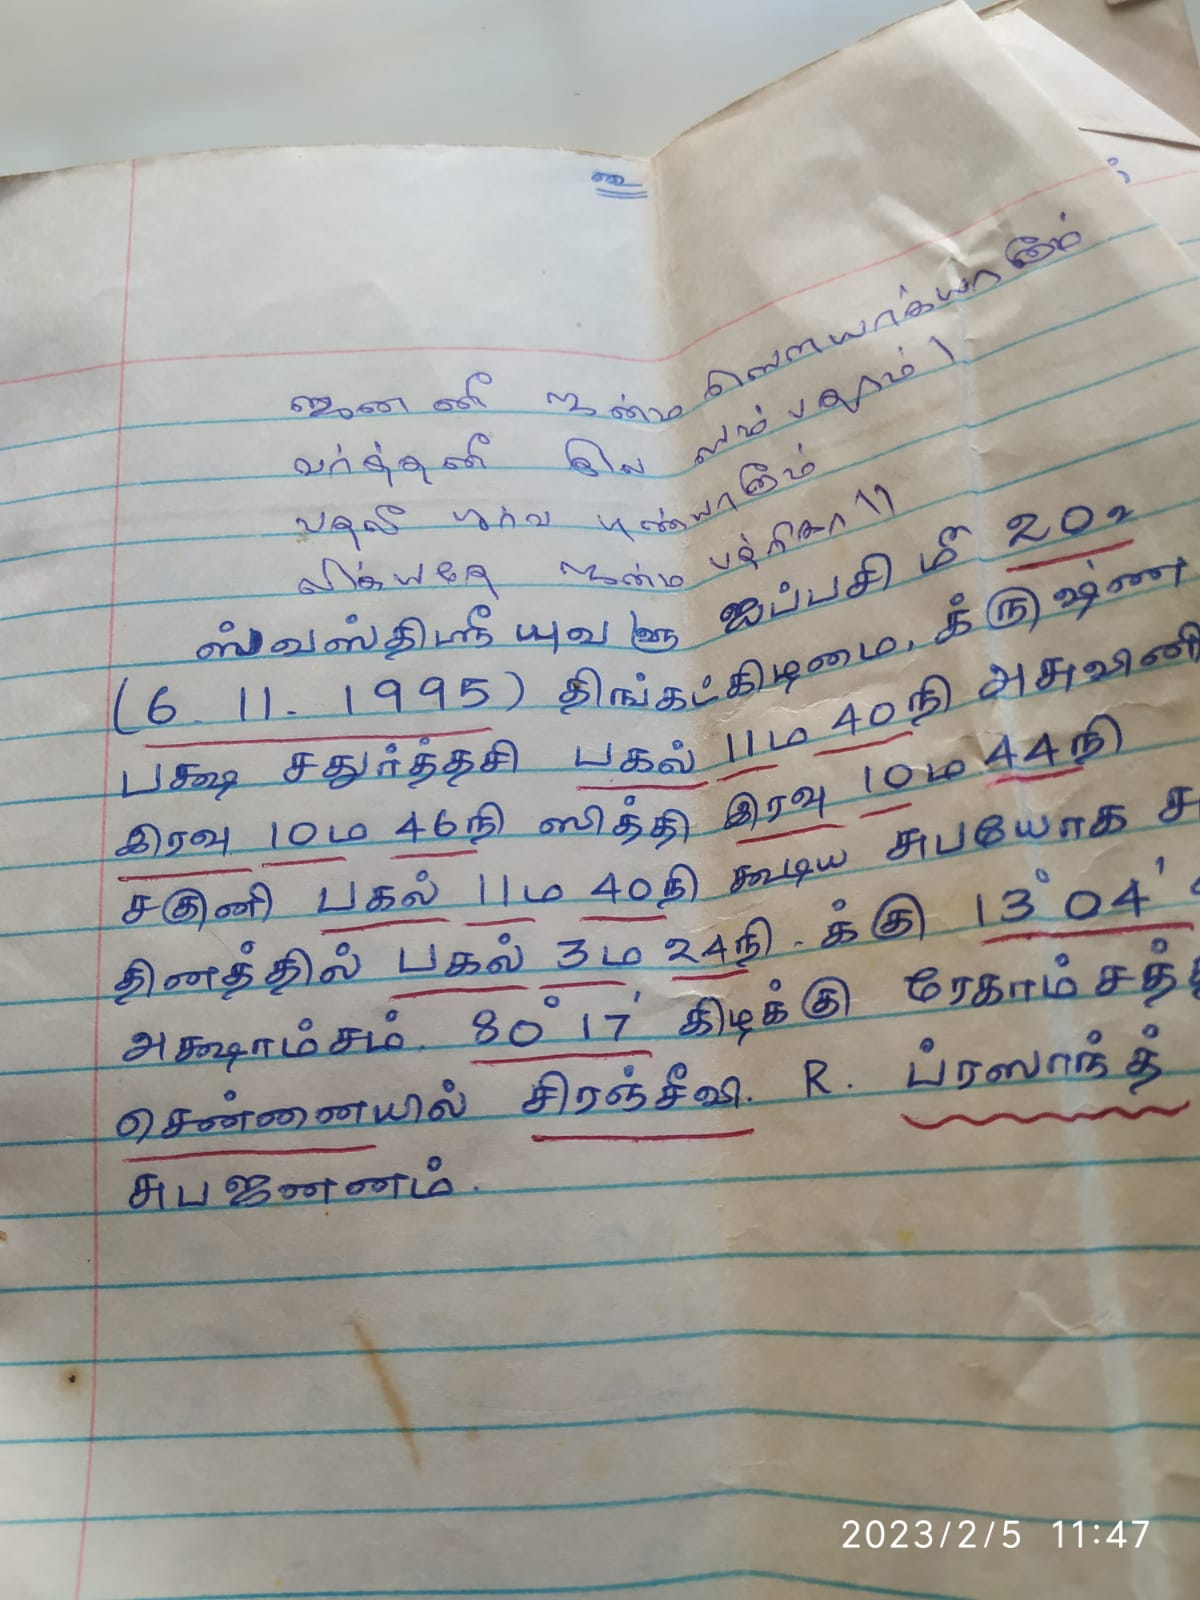 உ
ஜனனீ ஜன்ம ஸௌக்யாநாம்
வர்த்தனீ குல ஸம்பதாம் |
பதவீ பூர்வ புண்யாநாம்
லிக்யதே ஜன்ம பத்ரிகா ||
ஸ்வஸ்திஸ்ரீ யுவ ௵ ஐப்பசி மீ 20உ
(6.11.1995) திங்கட்கிழமை, க்ருஷ்ண
பக்ஷ சதுர்த்தசி பகல் 11ம 40நி அசுவினி
இரவு 10ம 46நி ஸித்தி இரவு 10ம 44நி
சகுனி பகல் 11ம 40நி கூடிய சுபயோக
தினத்தில் பகல் 3ம 24நி.க்கு 13° 04'
அக்ஷாம்சம். 80° 17' கிழக்கு ரேகாம்சத்
சென்னையில் சிரஞ்சீவி. R. ப்ரஸாந்த்
சுபஜனனம்.
2023/2/5 11:47